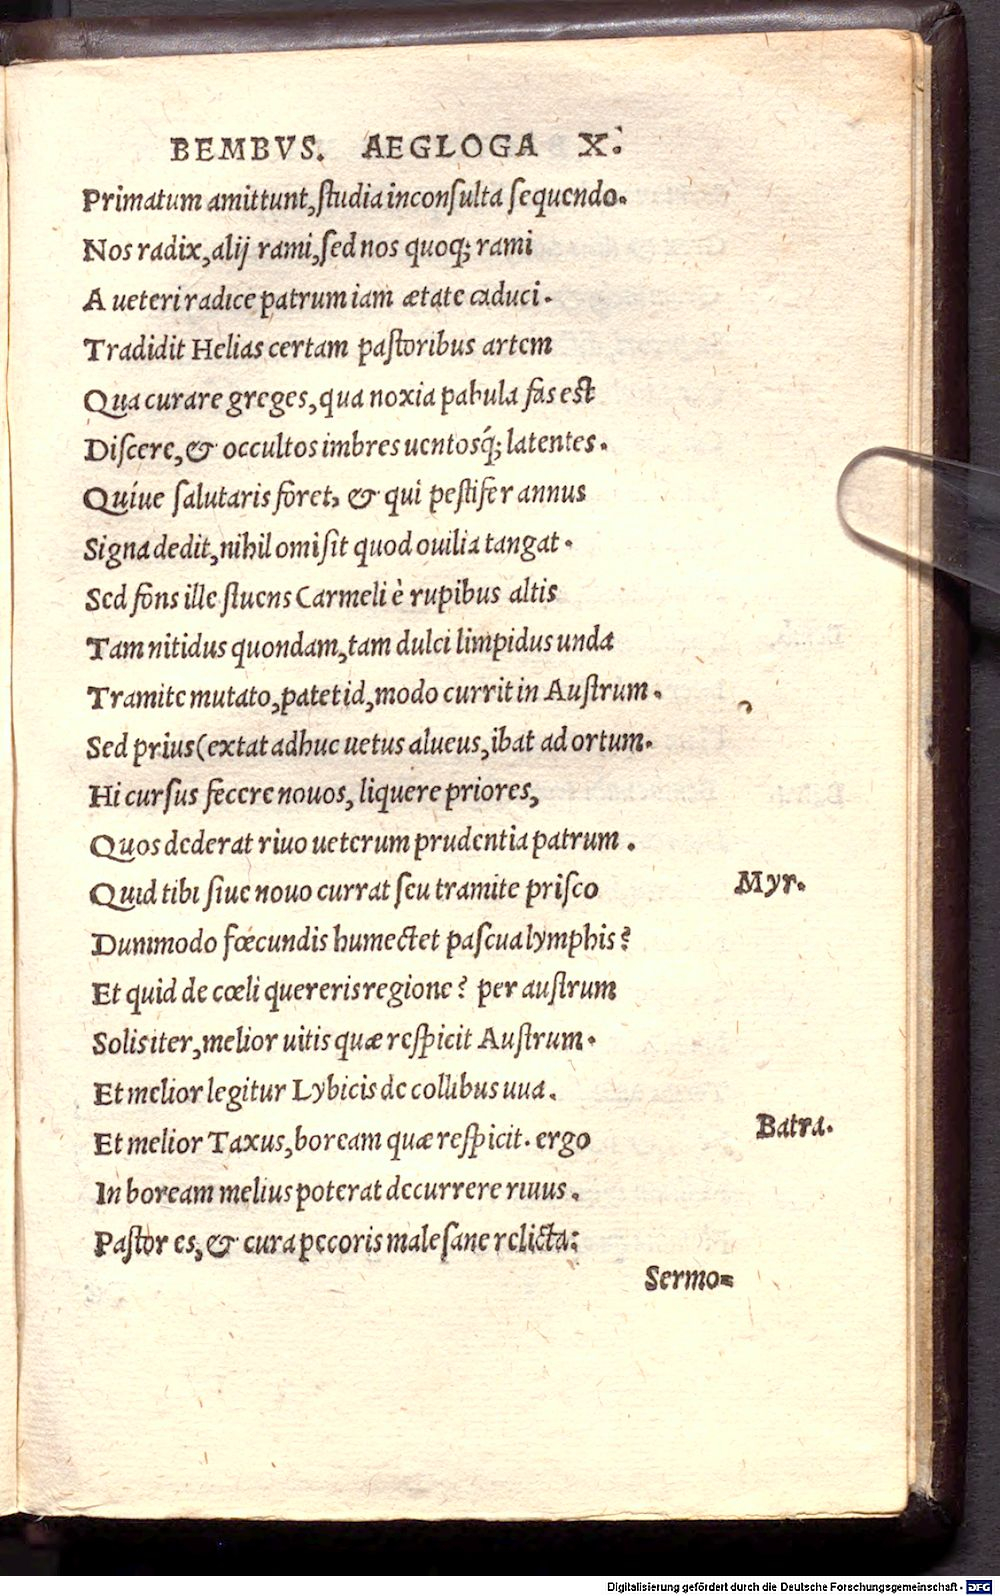 BEMBVS. AEGLOGA X.
Primatum amittunt, studia inconsulta sequendo.
Nos radix, alij rami, sed nos quoq; rami
A ueteri radice patrum iam ætate caduci.
Tradidit Helias certam pastoribus artem
Qua curare greges, qua noxia pabula fas est
Discere, & occultos imbres uentosq́; latentes.
Quiue salutaris foret, & qui pestifer annus
Signa dedit, nihil omisit quod ouilia tangat.
Sed fons ille fluens Carmeli è rupibus altis
Tam nitidus quondam, tam dulci limpidus unda
Tramite mutato, patet id, modo currit in Austrum.
Sed prius (extat adhuc uetus alueus, ibat ad ortum.
Hi cursus fecere nouos, liquere priores,
Quos dederat riuo ueterum prudentia patrum.
Quid tibi siue nouo currat seu tramite prisco Myr.
Dummodo fœcundis humectet pascua lymphis?
Et quid de cœli quereris regione? per austrum
Solis iter, melior uitis quæ respicit Austrum.
Et melior legitur Lybicis de collibus uua.
Et melior Taxus, boream quæ respicit. ergo Batra.
In boream melius poterat decurrere riuus.
Pastor es, & cura pecoris male sane relicta:
Sermo=
Digitalisierung gefördert durch die Deutsche Forschungsgemeinschaft - DFG